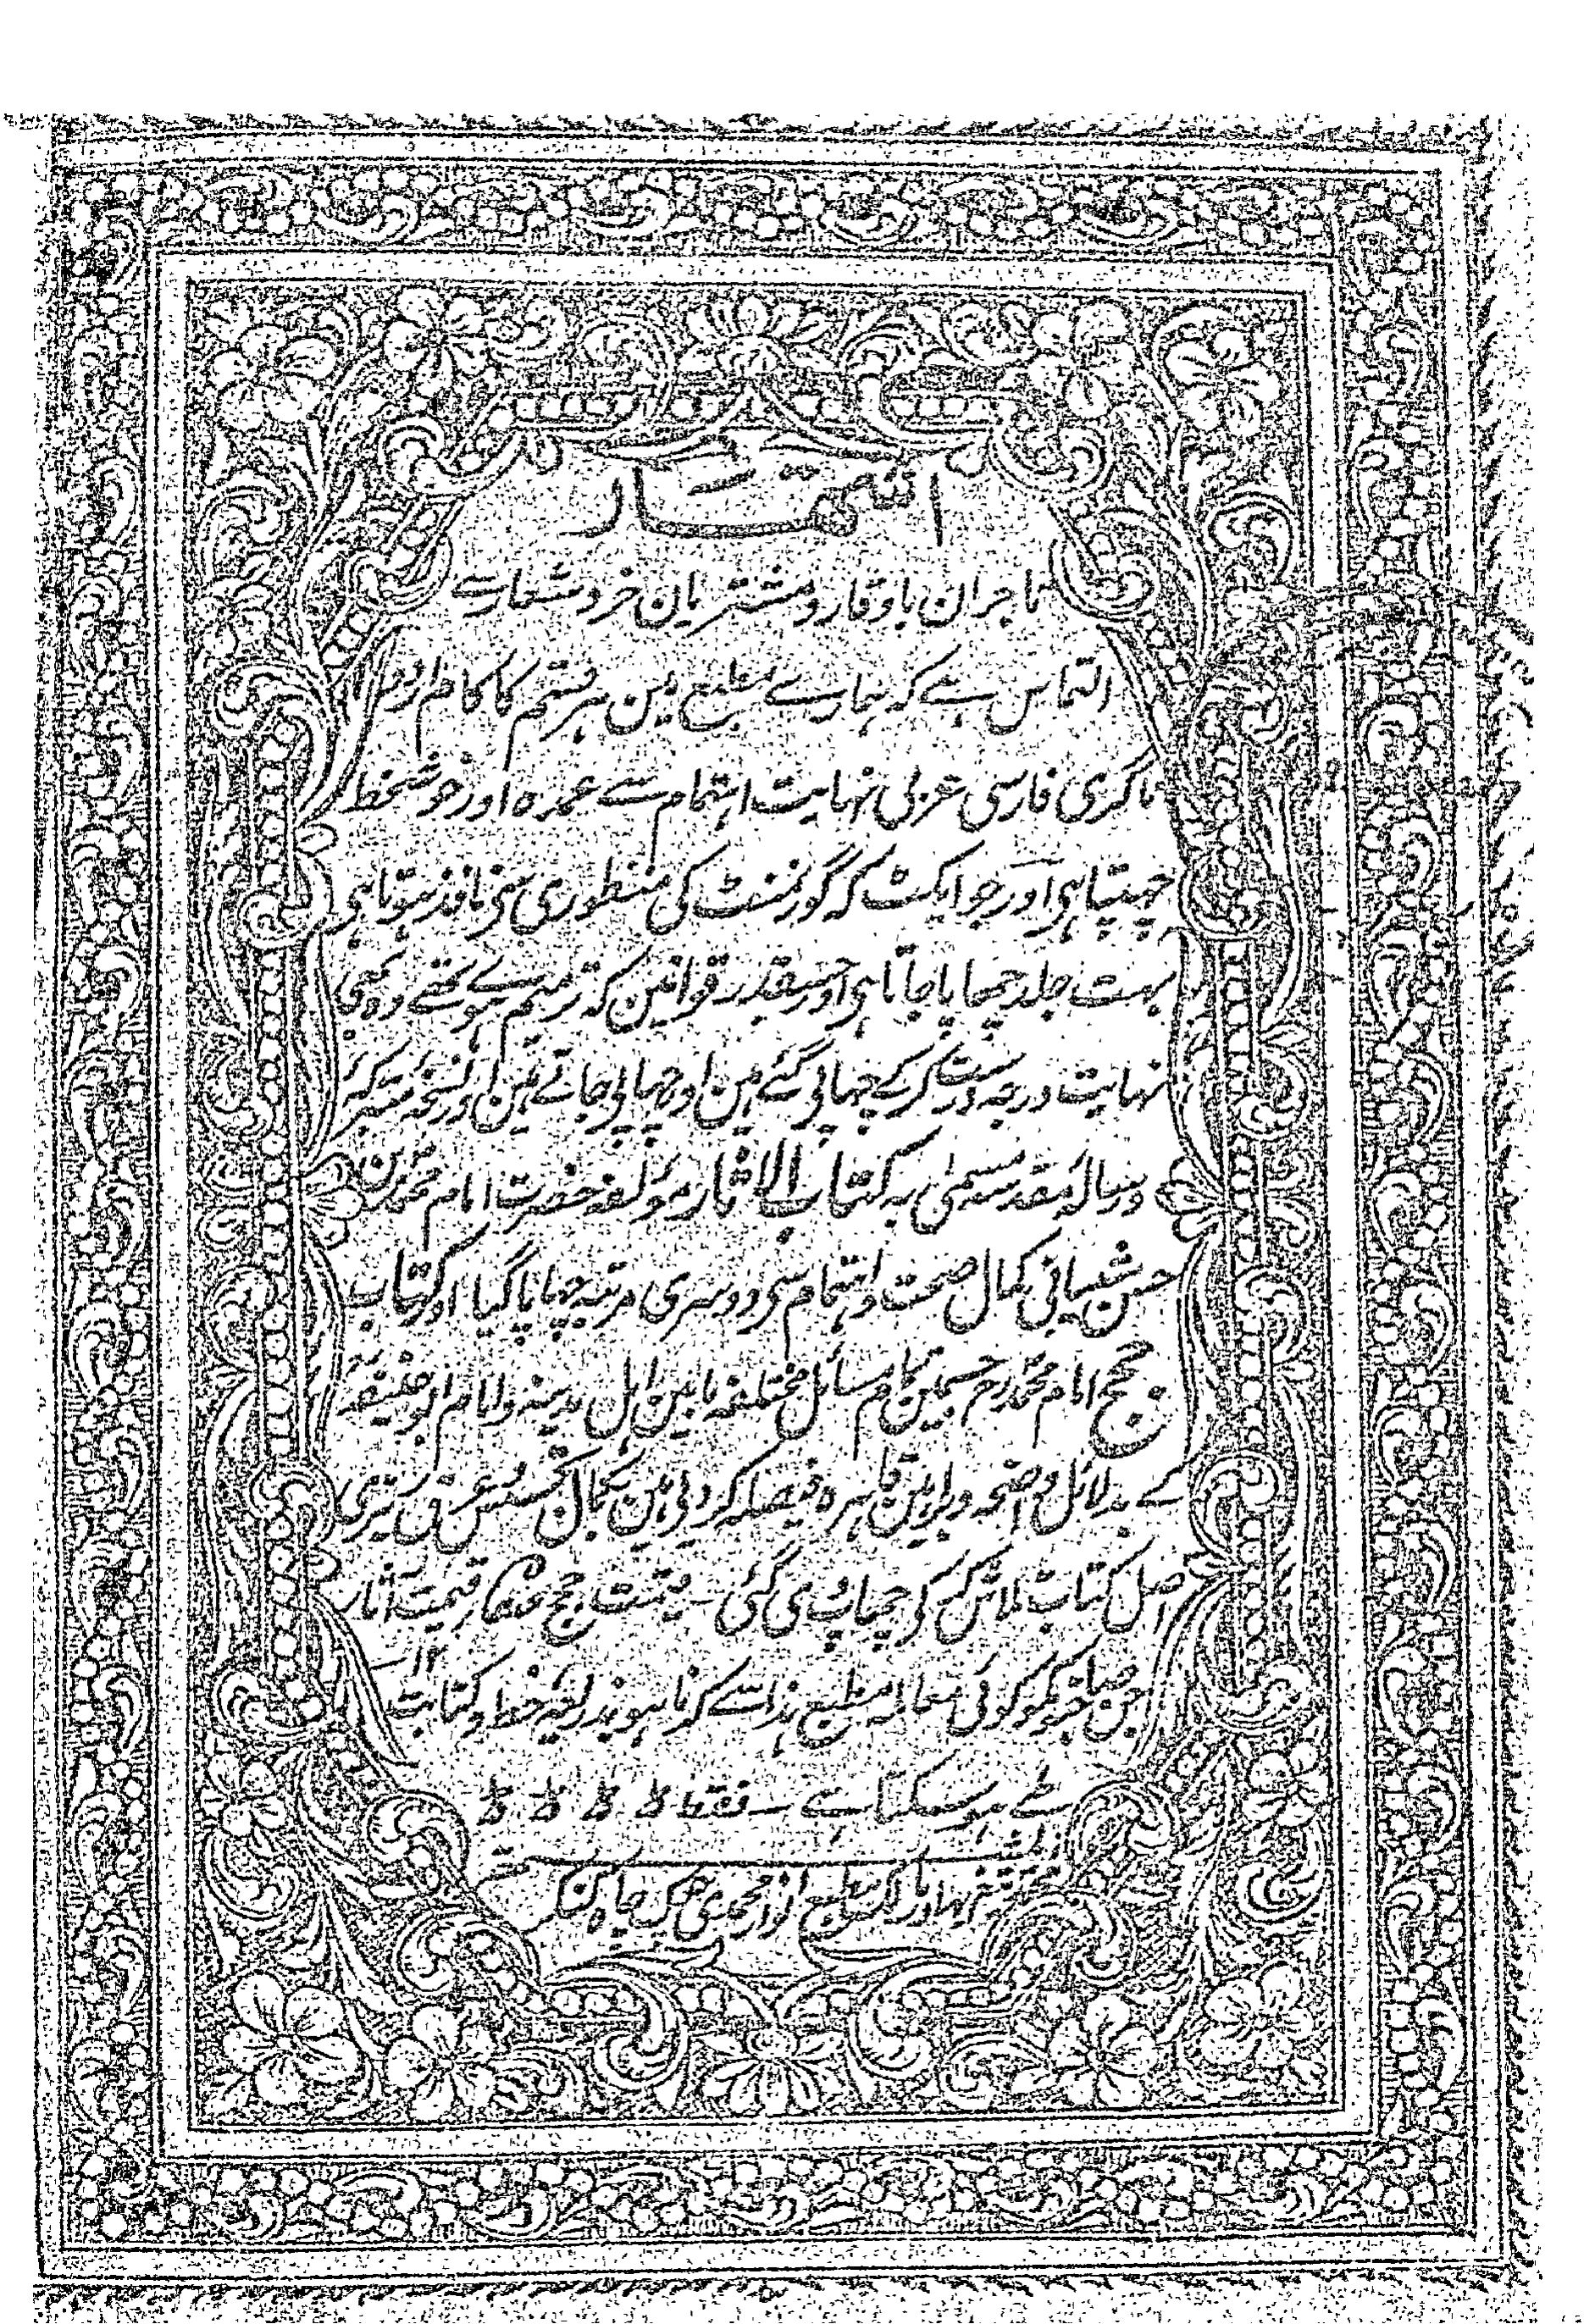 اشتہار
تاجران باوقار و مشتریان خرد شعار سے
التماس ہے کہ ہمارے مطبع مین ہر قسم کا کام اردو
ناگری فارسی عربی نہایت اہتمام سے عمدہ اور خوشخط
چھپتا ہی اور جو ایکٹ کہ گورنمنٹ کی منظوری سی نافذ ہوتا ہی
بہت جلد چھاپا جاتا ہی اور جسقدر قوانین کہ ترمیم ہو چکے وہ بھی
نہایت درجہ درست کر کے چھاپی گئے ہین اور چھاپی جاتے ہین اور نسخہ متبرکہ
و رسالہ مقدسہ مسمیٰ بہ کتاب الآثار مؤلفہ حضرت امام محمد بن
حسن شیبانی کمال صحت و اہتمام سی دوسری مرتبہ چھاپا گیا اور کتاب
حجج امام محمد رح جسمین تمام مسائل مختلفہ مابین اہل مدینہ و امام ابو حنیفہ
کے بدلائل واضحہ و براہین قاہرہ فیصلہ کر دی ہین بکمال تجسس و عرق ریزی
اصل کتاب تلاش کر کی چھاپ دی گئی ۔ قیمت حجج قیمت آثار
جن صاحبونکو کوئی معاملہ مطبع ہذا سے کرنا ہو بذریعہ خط و کتابت
طے ہو سکتا ہے ۔ فقط
المشتہر
بہادر مالک مطبع انوار محمدی